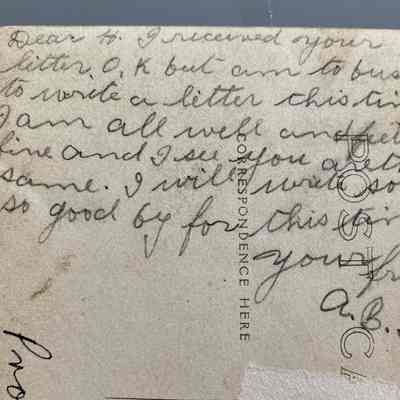 Dear H. I received your
litter. O.K but am to bus
to write a litter this tim
I am all well and feel
fine and I see you a eth
same. I will write so
so good by for this tim
your fr
A.B.
CORRESPONDENCE HERE
POST CA